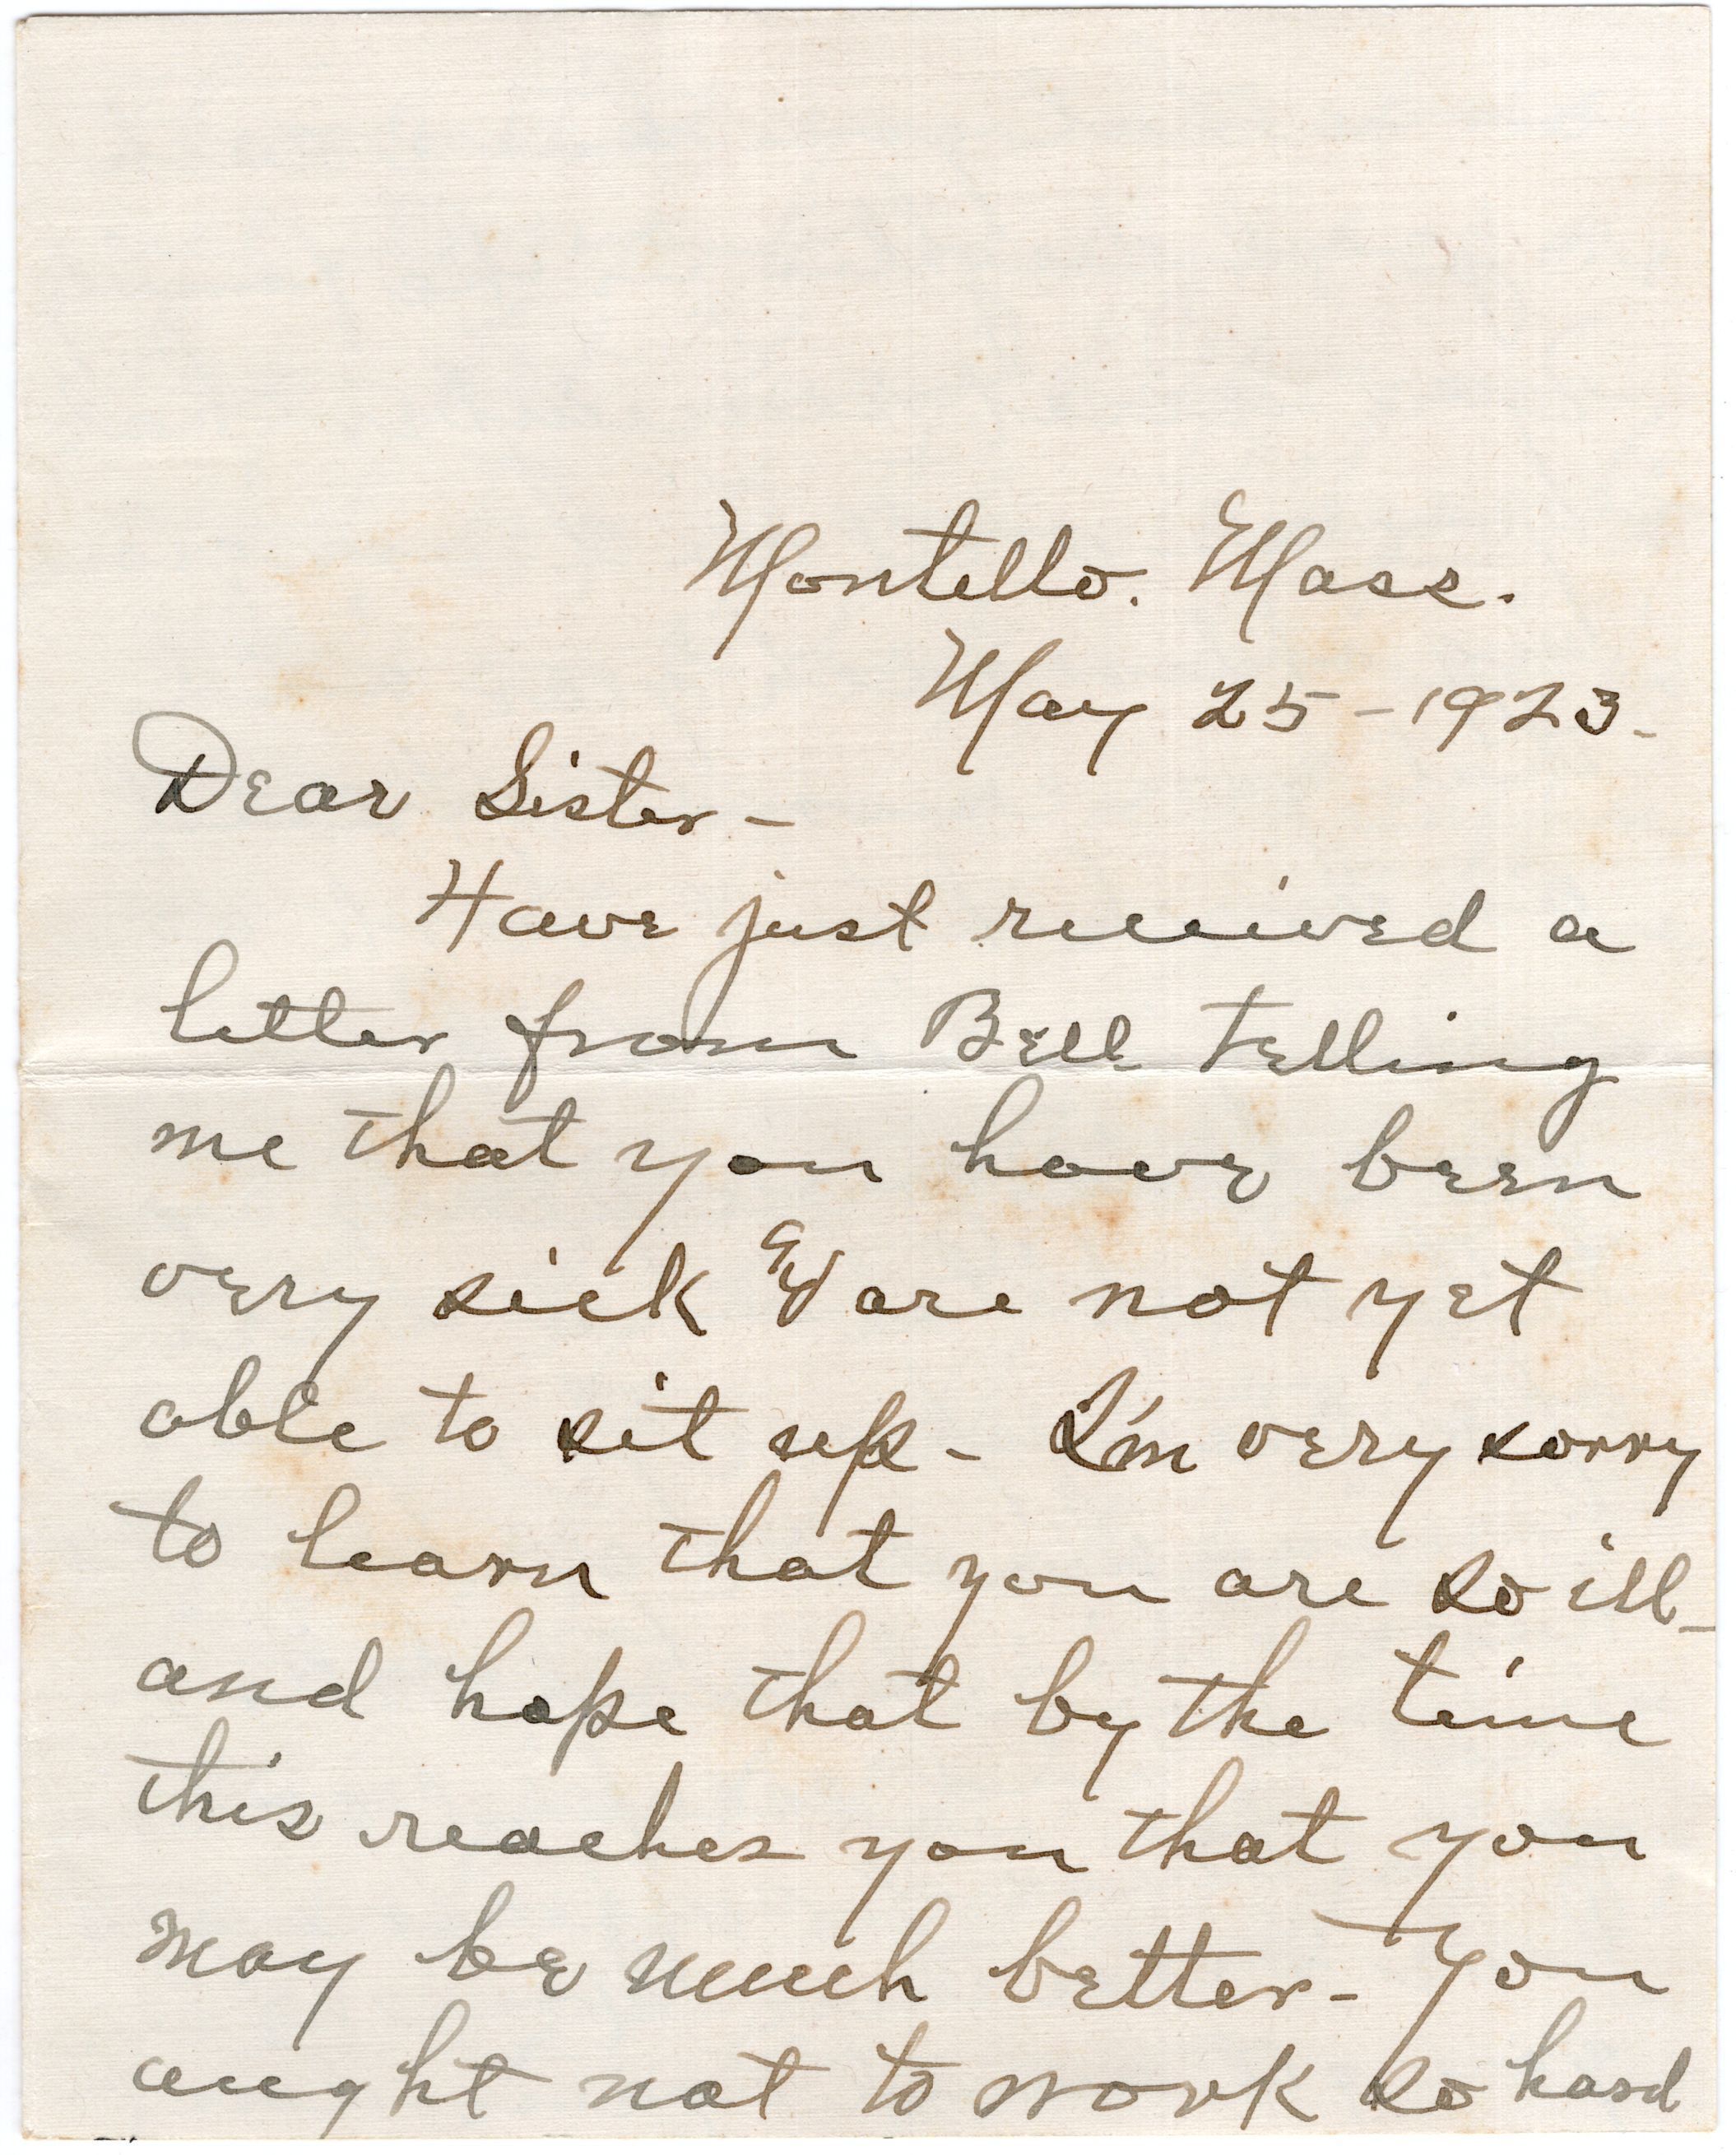 Montello. Mass.
May 25-1923-
Dear Sister-
Have just received a
letter from Bell telling
me that you have been
very sick & are not yet
able to sit up- I'm very sorry
to learn that you are so ill-
and hope that by the time
this reaches you that you
may be much better- You
aught not to work so hard